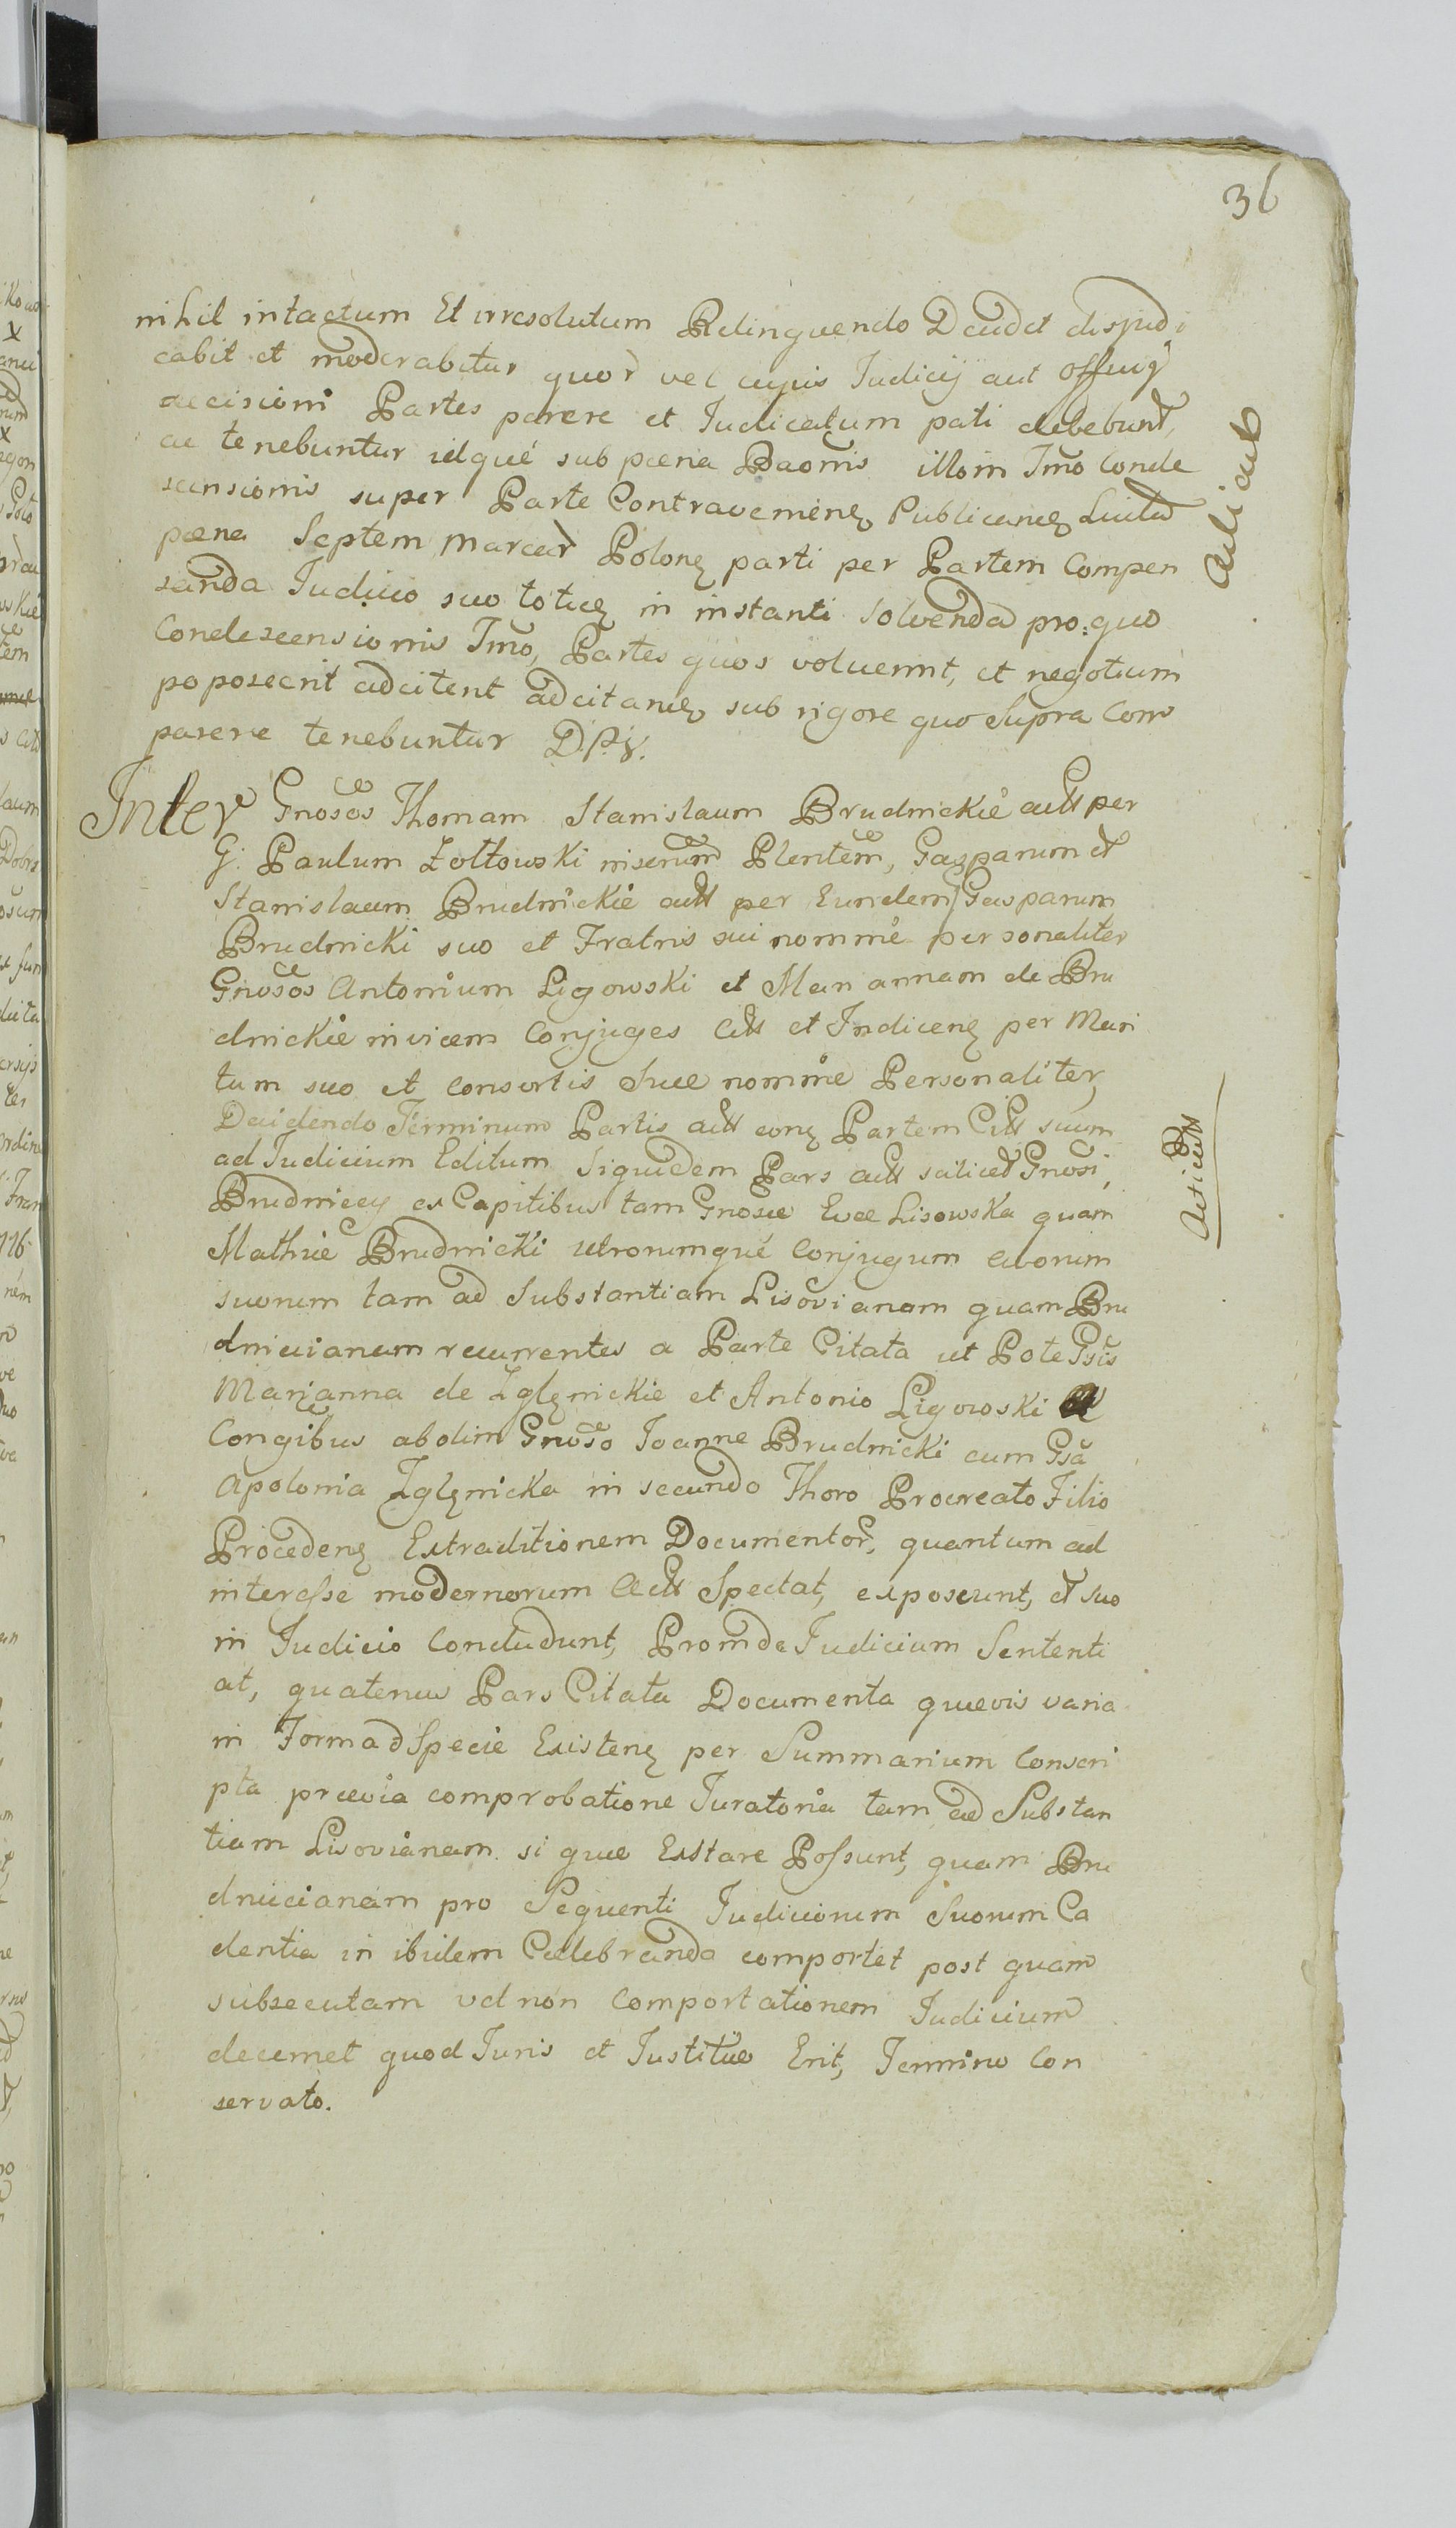 36
nihil intactum Et irresolutum Relinquendo Decidet disjudi
cabit et moderabitur quor vel cujus Judicij aut
decisioni Partes parere et Judicatum pati debebunt,
ac tenebuntur idque sub pæna Baonis illo in Tmo Conde
scensionis super Parte Contraveniene Publicane Luitd
pæna Septem Marcar Polone parti per Partem Compen
sanda Judicio suo toties in instanti solvenda pro: quo
Condescensionis Tmo, Partes quos voluerint, et negotium
poposcerit adcitent adcitane sub rigore quo Supra Com
parere tenebuntur
Adicit
Inter Gnosos Thomam Stanislaum Brudnickie actt per
G: Paulum Zołtowski miserum Plentem, Gasparum et
Stanislaum Brudnickie actt per Eundem Gasparum
Brudnicki suo et Fratris sui nomine personaliter
Gnosos Antonium Ligowski et Mariannam de Bru
dnickie invicem Conjuges Citt et Indicene per Mari
tum suo et consortis suæ nomine Personaliter,
Decidendo Terminum Partis actt cone Partem Citt suum
ad Judicium Editum Siquidem Pars actt scilicet Gnosi,
Brudniccy ex Capitibus tam Gnosæ Evæ Lisowska quam
Mathiæ Brudnicki utrorumque Conjugum avorum
suorum tam ad Substantiam Lisovianam quam Bru
dnicianam recurrentes a Parte Citata ut Pote Gsis
Marianna de Zglęnickie et Antonio Ligowski
Congibus ab olim Gnoso Joanne Brudnicki cum Gsa
Apolonia Zglęnicka in secundo Thoro Procreato Filio
Procedene Extraditionem Documentor, quantum ad
interesse modernorum Actt Spectat, exposcunt, et suo
in Judicio Concludunt, Proinde Judicium Sententi
at, quatenus Pars Citata Documenta quævis varia
in Forma d Specie Existene per Summarium Conscri
pta prævia comprobatione Juratoria tam ad Substan
tiam Lisovianam si quæ Exstare Possunt, quam Bru
dnicianam pro Sequenti Judiciorum Suorum Ca
dentia in ibidem Cælebranda comportet post quam
subsecutam vel non Comportationem Judicium
decernet quod Juris et Justitiæ Erit, Termino Con
servato.